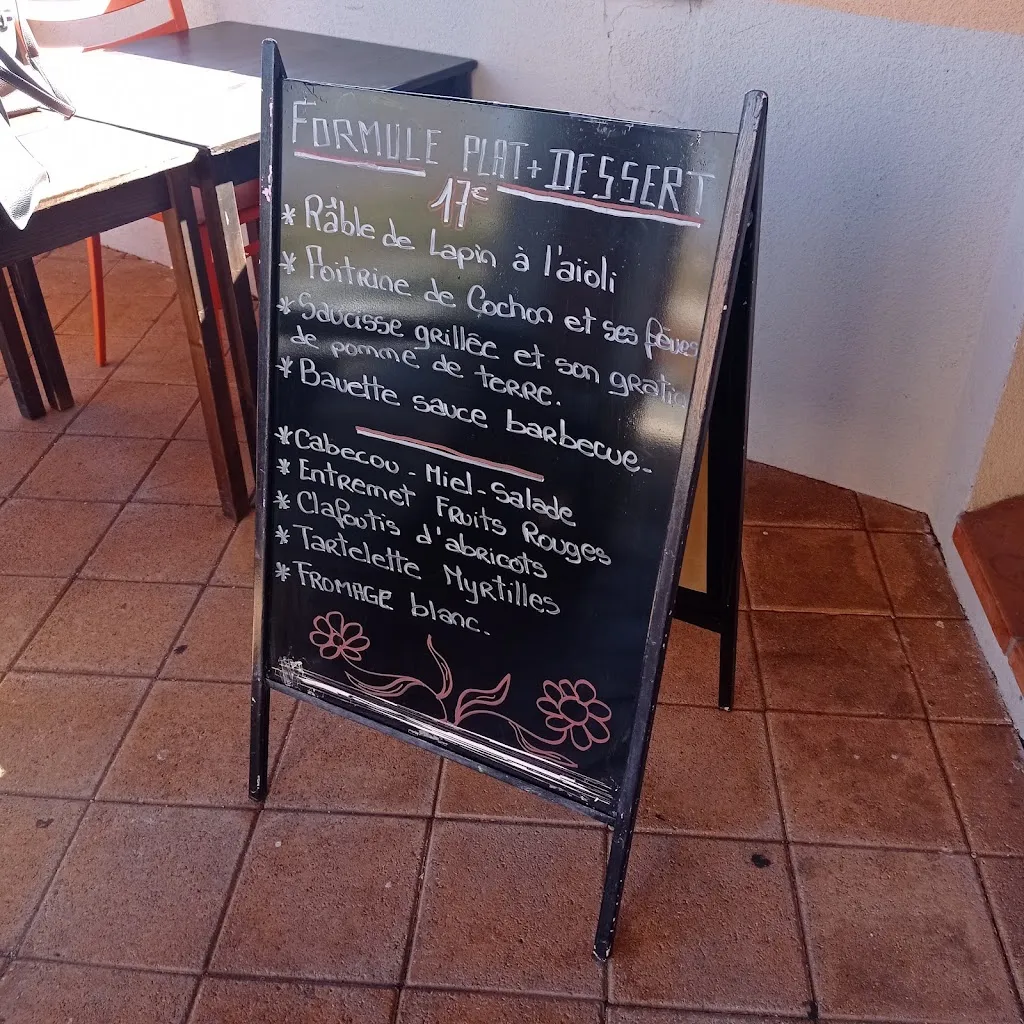 FORMULE PLAT+DESSERT
17€
* Râble de Lapin à l'aïoli
* Poitrine de Cochon et ses fèves
* Saucisse grillée et son gratin
de pomme de terre.
* Bavette sauce barbecue-
* Cabecou - Miel - Salade
* Entremet Fruits Rouges
* Clafoutis d'abricots
* Tartelette Myrtilles
* FROMAGE blanc.